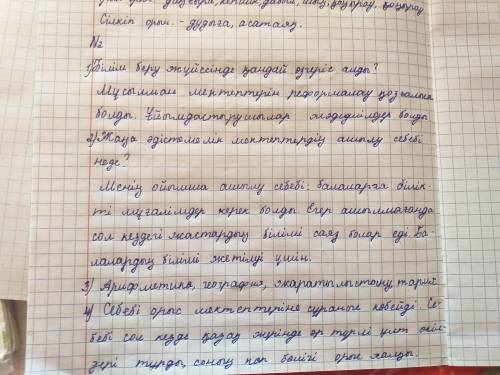 Сілкіп орын. - дудыға, асатаяқ.
№2
1) Білім беру жүйесінде қандай өзгеріс алды?
Мұсылман мектептерін реформалау қозғалысы
болды. Ұйымдастырушылар жәдидшілдер болды.
2) Жаңа әдістемелік мектептердің ашылу себебі
неде?
Менің ойымша ашылу себебі: балаларға білік-
ті мұғалімдер керек болды. Егер ашылмағанда
сол кездегі жастардың білімі саяз болар еді. Ба-
лалардың білімі жетілуі үшін.
3) Арифметика, география, жаратылыстану, тарих.
4) Себебі орыс мектептеріне сұраныс көбейді. Се-
бебі сол кезде қазақ жерінде әр түрлі ұлт өкіл-
дері тұрды, соның көп бөлігі орыс халқы.